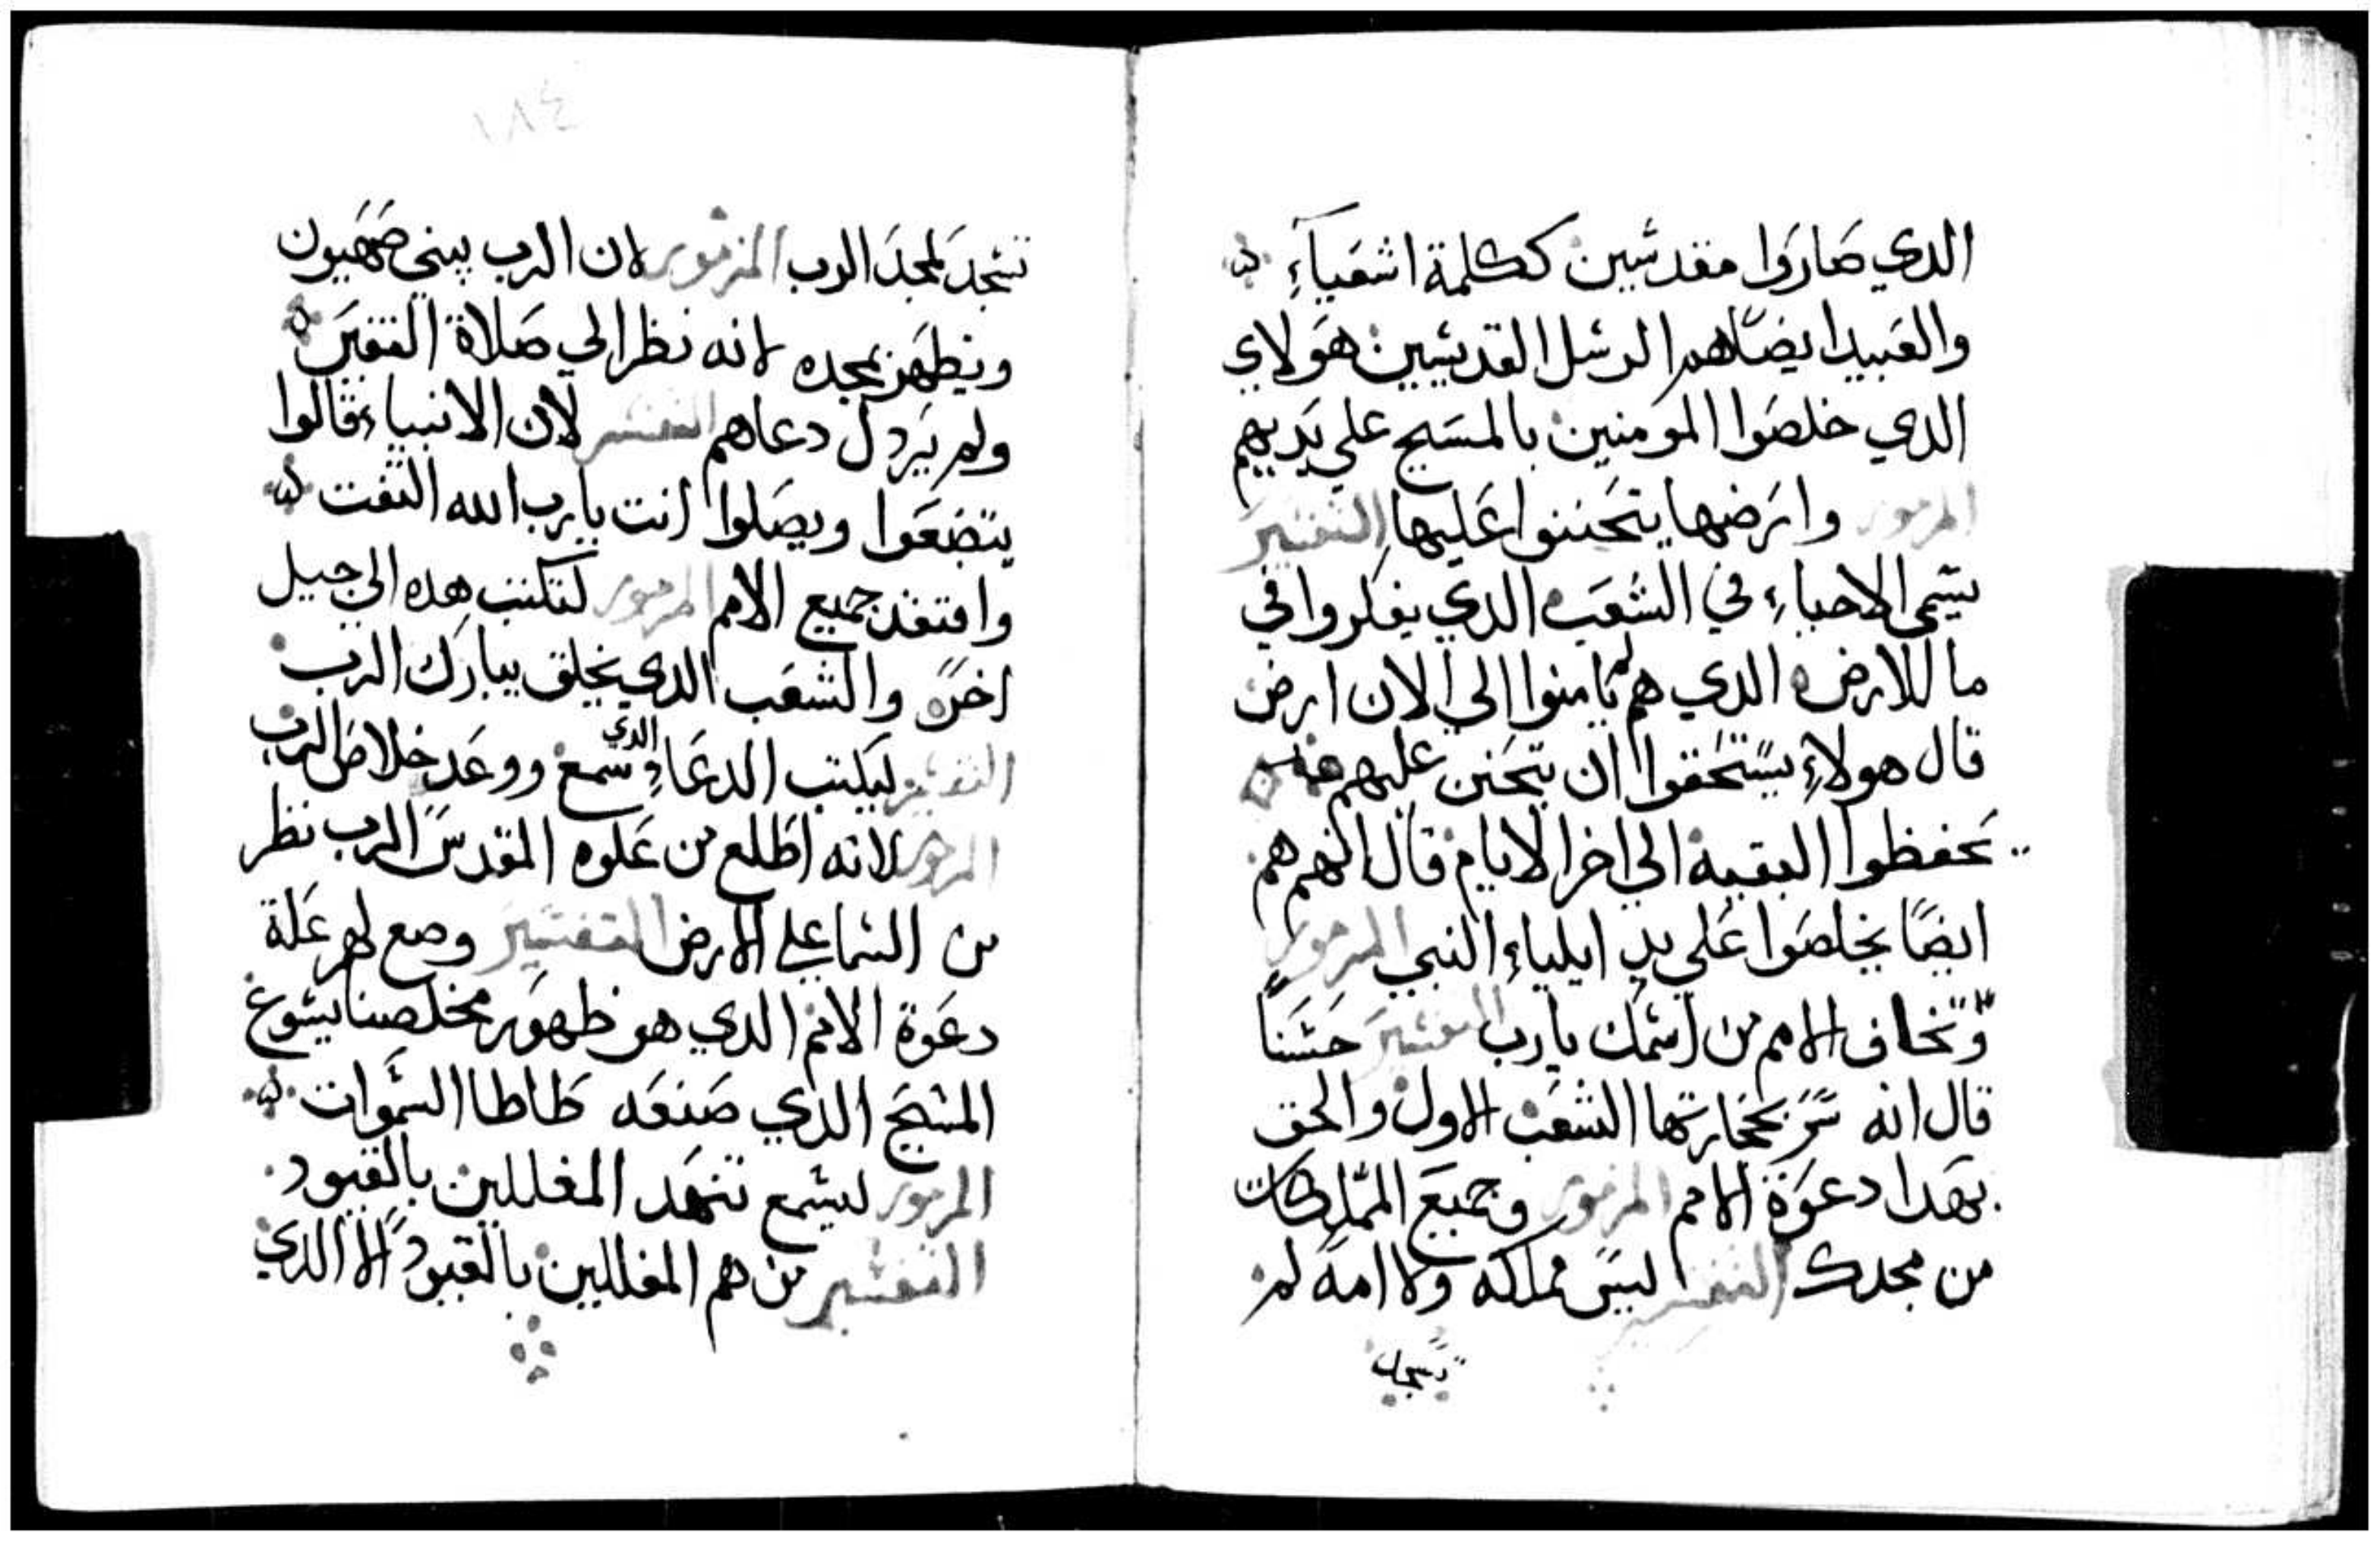 الدي صاروا مقدسين ككلمة اشعياء
والعبيد ايضًا هم الرسل القديسين هولاي
الدي خلصوا المومنين بالمسيح علي يديهم
المزمور وارضها يتحننوا عليها التفسير
يسمى الاحباء في الشعب الدي يفكروا في
ما للارض الدي هم لم يامنوا الي الان ارض
قال هولاء يستحقوا ان يتحنن عليهم
يحفظوا البقية الي اخر الايام قال انهم هم
ايضًا يخلصوا علي يد ايلياء النبي المزمور
وتخاف الامم من اسمك يارب التفسير حسنًا
قال انه سر بحجارتها الشعب الاول والحق
بهدا دعوة الامم المزمور وجميع المملكات
من مجدك التفسير ليس مملكه ولا امه لم
تسجد
٤٨١
تسجد لمجد الرب المزمور لان الرب يبني صهيون
ويظهر بمجده لانه نظر الي صلاة الفقير
ولم يردل دعاهم التفسير لان الانبياء قالوا
يتضعوا ويصلوا انت يارب الله التفت
وافتقد جميع الامم المزمور لتكتب هده الي جيل
اخر والشعب الدي يخلق يبارك الرب
التفسير ليكتب الدعاء الدي سمع ووعد خلاص الرب
المزمور لانه اطلع من علوه المقدس الرب نظر
من السما علي الارض التفسير وضع لهم علة
دعوة الامم الدي هو ظهور مخلصنا يسوع
المسيح الدي صنعه طاطا السموات
المزمور ليسمع تنهد المغللين بالقيود
التفسير من هم المغللين بالقيود الا الدي